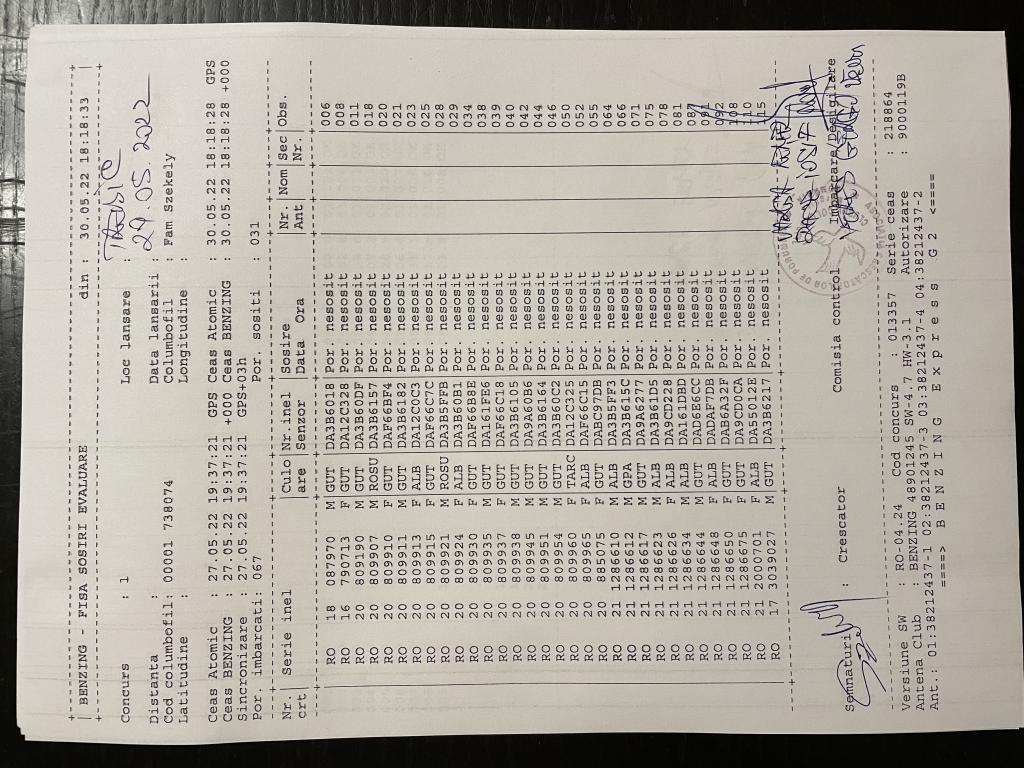 | BENZING - FISA SOSIRI EVALUARE din : 30.05.22 18:18:33 |
Concurs : 1 Loc lansare :
Distanta : Data lansarii : 29.05.2022
Cod columbofil: 00001 738074 Columbofil : Fam Szekely
Latitudine : Longitudine :
Ceas Atomic : 27.05.22 19:37:21 GPS Ceas Atomic : 30.05.22 18:18:28 GPS
Ceas BENZING : 27.05.22 19:37:21 +000 Ceas BENZING : 30.05.22 18:18:28 +000
Sincronizare : 27.05.22 19:37:21 GPS+03h
Por. imbarcati: 067 Por. sositi : 031
Nr. | Serie inel | Culo | Nr.inel | Sosire | Nr. | Nom | Sec | Obs.
crt | | are | Senzor | Data Ora | Ant | | Nr. |
RO 18 087970 M GUT DA3B6018 Por. nesosit 006
RO 16 790713 F GUT DA12C328 Por. nesosit 008
RO 20 809190 M GUT DA3B60DF Por. nesosit 011
RO 20 809907 M ROSU DA3B6157 Por. nesosit 018
RO 20 809910 F GUT DAF66BF4 Por. nesosit 020
RO 20 809911 M GUT DA3B6182 Por. nesosit 021
RO 20 809913 F ALB DA12C0C3 Por. nesosit 023
RO 20 809915 F GUT DAF66C7C Por. nesosit 025
RO 20 809921 M ROSU DA3B5FFB Por. nesosit 028
RO 20 809924 F ALB DA3B60B1 Por. nesosit 029
RO 20 809930 F GUT DAF66B8E Por. nesosit 034
RO 20 809935 M GUT DA161FE6 Por. nesosit 038
RO 20 809937 F GUT DAF66C18 Por. nesosit 039
RO 20 809938 M GUT DA3B6105 Por. nesosit 040
RO 20 809945 M GUT DA9A60B6 Por. nesosit 042
RO 20 809951 M GUT DA3B6164 Por. nesosit 044
RO 20 809954 M GUT DA3B60C2 Por. nesosit 046
RO 20 809960 F TARC DA12C325 Por. nesosit 050
RO 20 809965 F ALB DAF66C15 Por. nesosit 052
RO 20 885075 F GUT DABC97DB Por. nesosit 055
RO 21 1286610 M ALB DA3B5FF3 Por. nesosit 064
RO 21 1286612 M GPA DA3B615C Por. nesosit 066
RO 21 1286617 M GUT DA9A6277 Por. nesosit 071
RO 21 1286623 M ALB DA3B61D5 Por. nesosit 075
RO 21 1286626 F ALB DA9CD228 Por. nesosit 078
RO 21 1286634 M ALB DA161DBD Por. nesosit 081
RO 21 1286644 M GUT DAD6E6CC Por. nesosit 087
RO 21 1286648 F ALB DADAF7DB Por. nesosit 091
RO 21 1286650 F GUT DAB6A32F Por. nesosit 092
RO 21 1286675 F GUT DA9CD0CA Por. nesosit 108
RO 21 2000701 F ALB DA55012E Por. nesosit 110
RO 17 3039027 M GUT DA3B6217 Por. nesosit 115
Semnaturi : Crescator Comisia control Imbarcare/Desigilare
Versiune SW : RO-04.24 Cod concurs : 013357 Serie ceas : 218864
Antena Club : BENZING 48901245 SW-4.7 HW-3.1 Autorizare : 9000119B
Ant.: 01:38212437-1 02:38212437-3 03:38212437-4 04:38212437-2
====> B E N Z I N G E x p r e s s G 2 <====